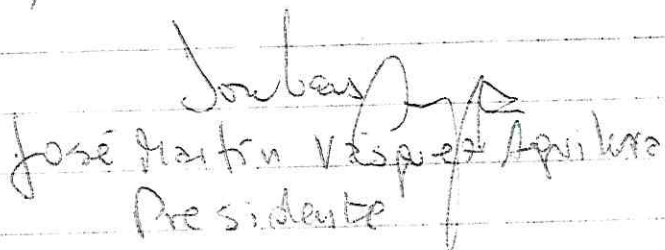 José Martín Vásquez Aguilera
Presidente